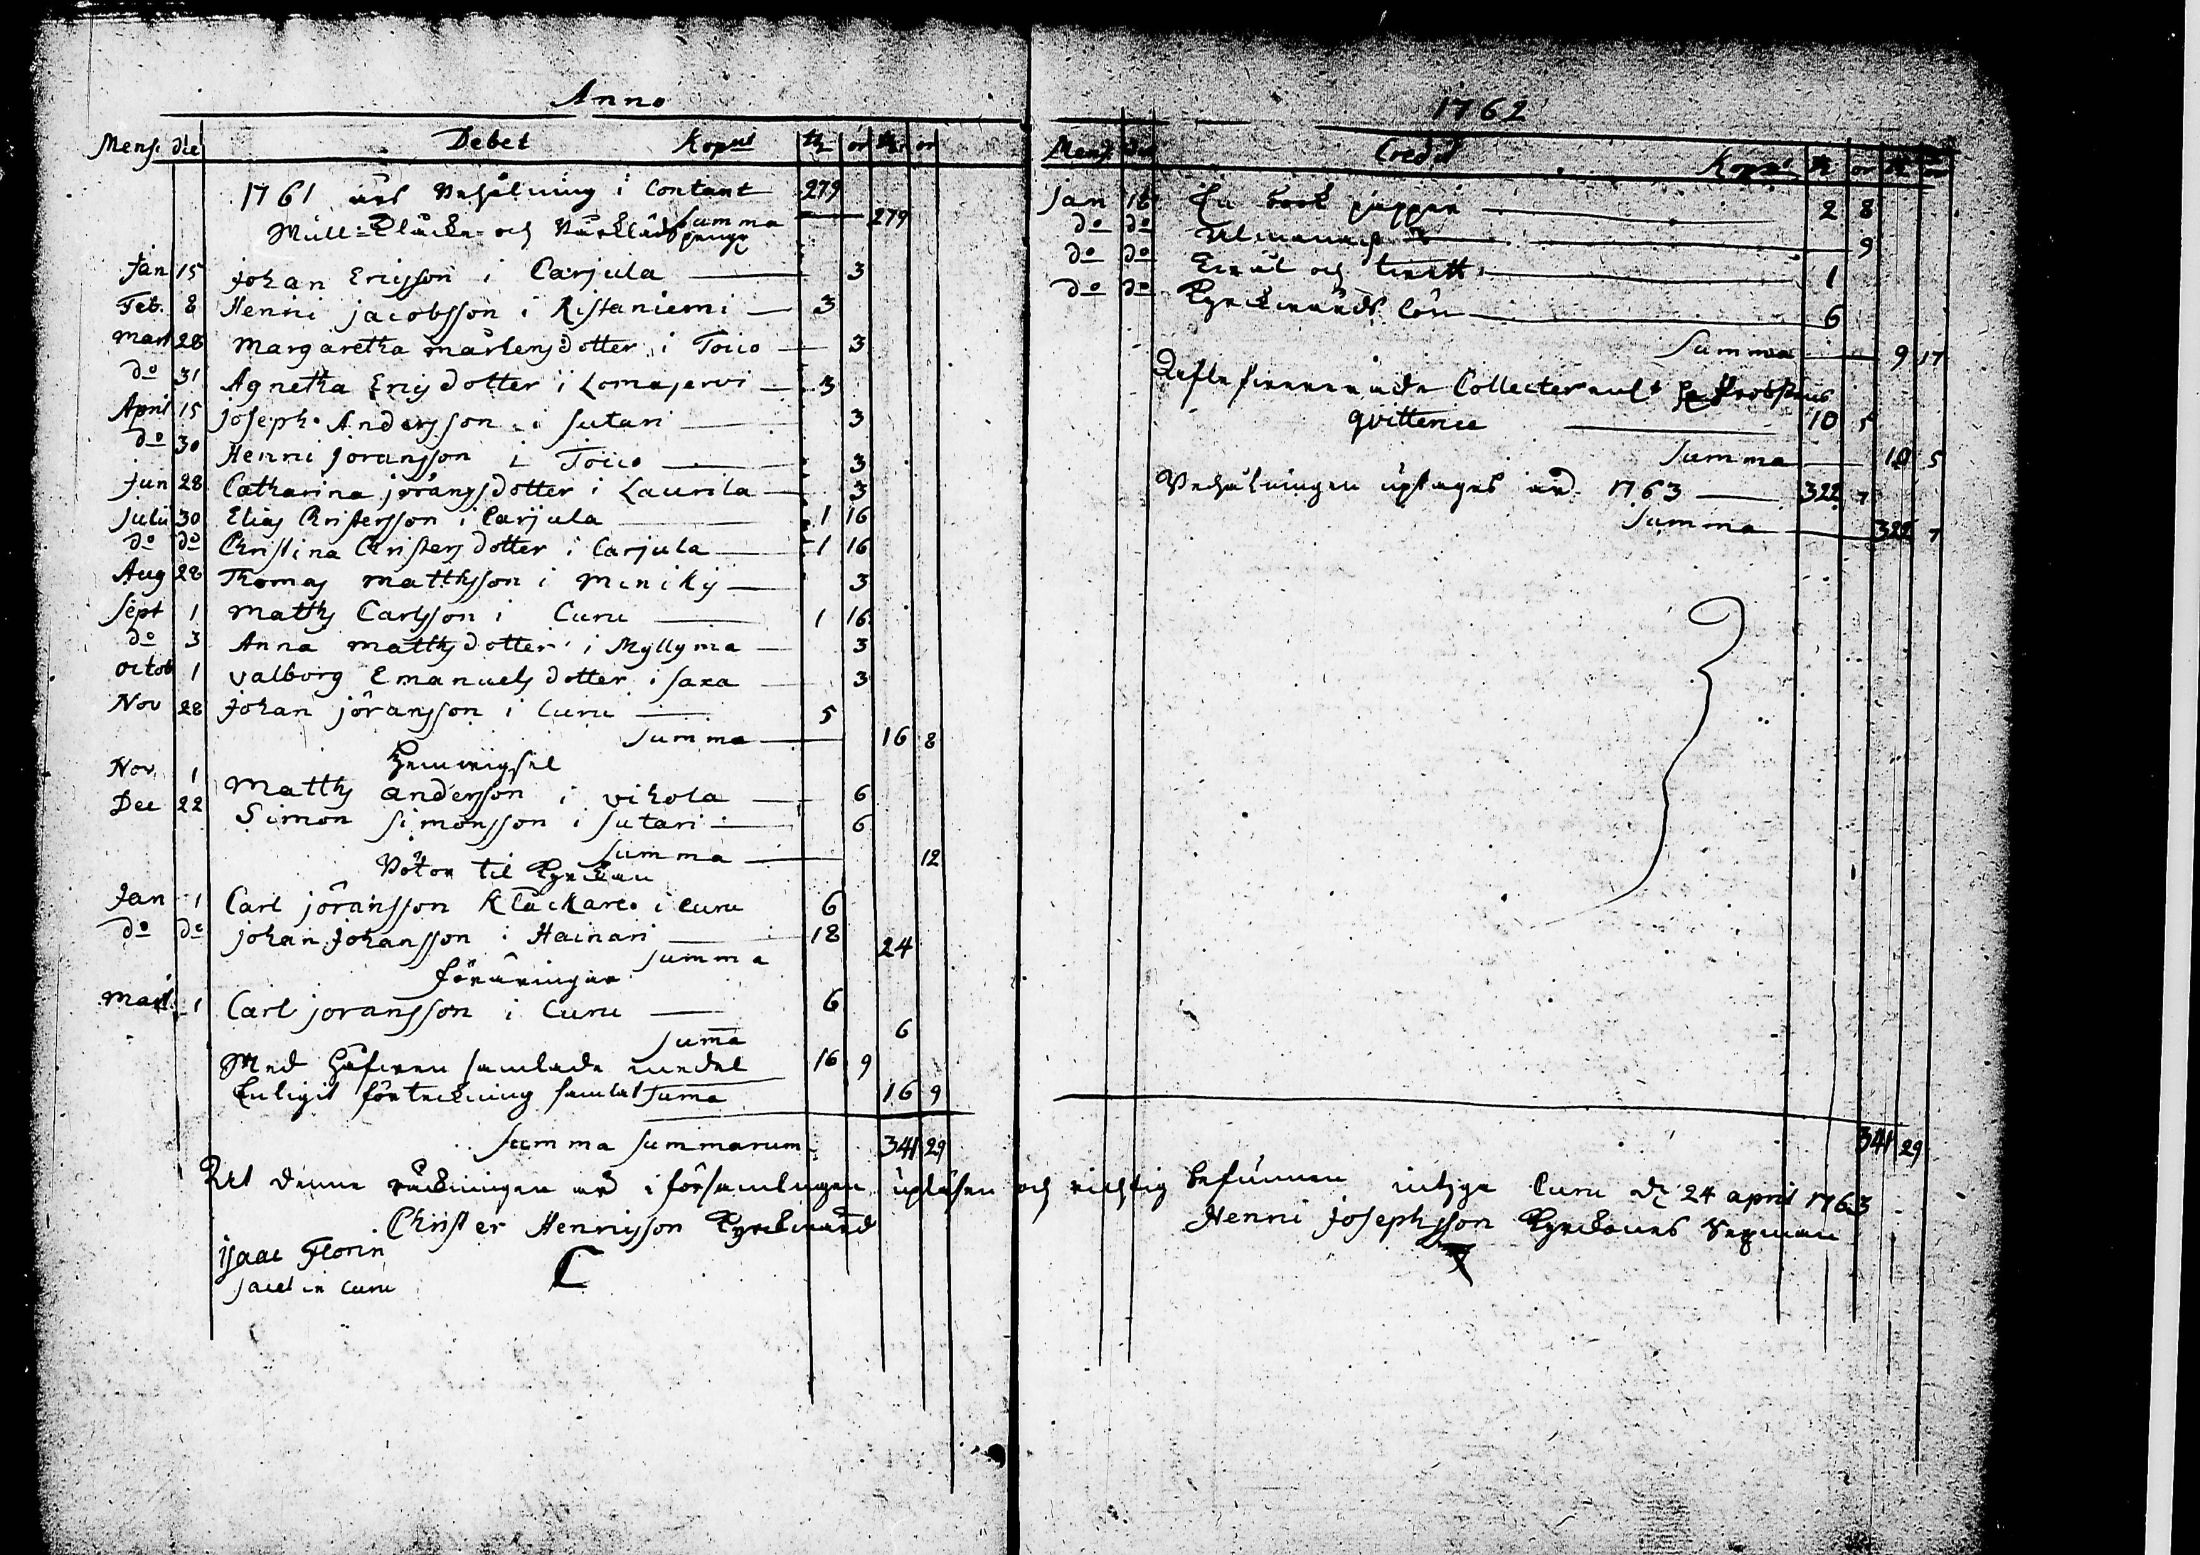 Anno
Mens. die Debet Kopmt or or
1761 års Behålning i Contant 279
Summa 279
Mull= Klåcke- och
Jan 15 Johan Ericsson i Carjula 3
Feb. 8 Henric Jacobsson i Ristaniemi 3
Mart 28 Margaretha Mårtensdotter i Toico 3
do 31 Agnetha Ericsdotter i Lomajervi 3
April 15 Joseph Andersson i Sutari 3
do 30 Henric Joransson i Toico 3
Jun 28 Catharina Jöransdotter i Laurila 3
Julii 30 Elias Christersson i Carjula 1 16
do do Christina Christersdotter i Carjula 1 16
Aug 28 Thomas Matthsson i Miniky 3
Sept 1 Matths Carlsson i Curu 1 16
do 3 Anna Matthsdotter i Myllyma 3
Octob 1 Valborg Emanuelsdotter i Saxa 3
Nov 28 Johan Jöransson i Curu 5
Summa 16 8
Hemvigsel
Nov 1 Matths Andersson i Vihola 6
Dec 22 Simon Simonsson i Sutari 6
Summa 12
Böter til Kyrckan
Jan 1 Carl Jöransson Klåckare i Curu 6
do do Johan Johansson i Hainari 18
Summa 24
Föräringar
Mart. 1 Carl Joransson i Curu 6
Suma 6
Med Håfwen samlade medel 16 9
Enligit förteckning samlat Suma 16 9
Summa Summarum 341 29
1762
Mens. die Credit Kopmt or or
Jan 16 En book papper 2 8
do do Almanach 9
do do 1
do do Kyrckwärds lön 6
Summa 9 17
Collecter enl. Probstens
qvittence 10 5
Summa 10 5
Behålningen uptages år 1763 322 7
Summa 322 7
341 29
At denne räckningen är i församlingen upläsen och richtig befunnen intyga Curu d. 24 april 1763
Christer Henricsson Kyrckwärd Henric Josephsson Kyrckones Sexman
Isaac Florin
Sacel in Curu